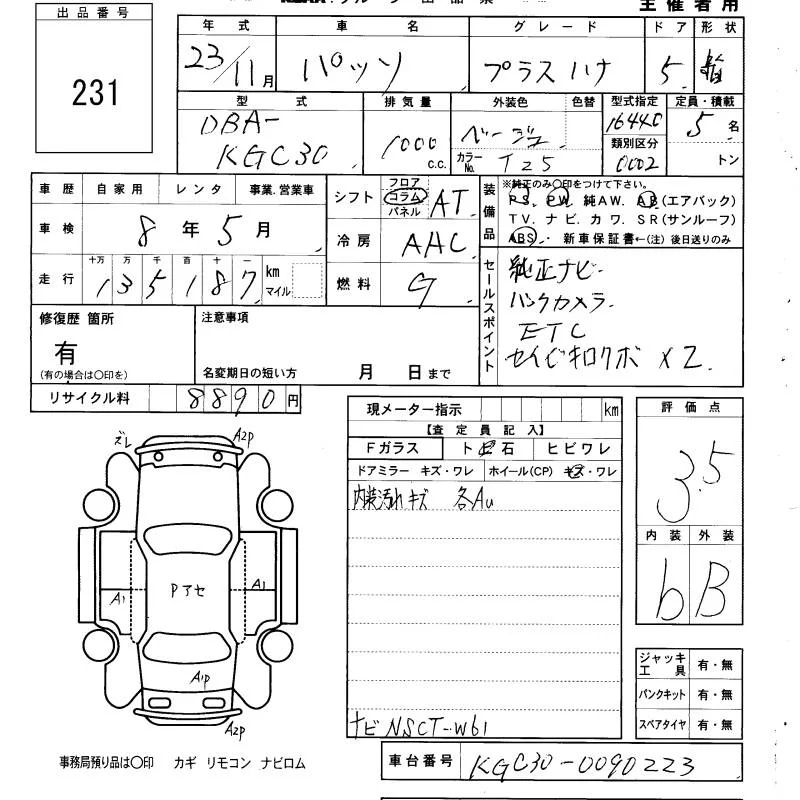 出品番号
231
主催者用
年式 車名 グレード ドア 形状
23/11月 パッソ プラスハナ 5
型式 排気量 外装色 色替 型式指定 定員・積載
DBA-KGC30 1000 c.c. ベージュ 16440 5名
カラーNo. T25 類別区分 0002 トン
車歴 自家用 レンタ 事業.営業車
シフト フロア コラム パネル AT
装備品
※純正のみ〇印をつけて下さい。
PS. PW. 純AW. AB(エアバック)
TV. ナビ. カワ. SR(サンルーフ)
ABS. 新車保証書←(注) 後日送りのみ
車検 8年5月
冷房 AAC
走行 十万 万 千 百 十 一
135187 km マイル
燃料 G
セールスポイント
純正ナビ
バックカメラ
ETC
修復歴 箇所
有
(有の場合は〇印を)
注意事項
名変期日の短い方 月 日まで
リサイクル料 8890円
現メーター指示 km
【査定員記入】
Fガラス ト ビ 石 ヒビワレ
ドアミラー キズ・ワレ ホイール(CP) キズ・ワレ
内装汚れキズ 各AU
ナビ NSCT-W61
評価点
3.5
内装 外装
b B
ズレ A2P
A1 Pアセ A1
A1P
A2P
ジャッキ工具 有・無
パンクキット 有・無
スペアタイヤ 有・無
事務局預り品は〇印 カギ リモコン ナビロム
車台番号 KGC30-0090223